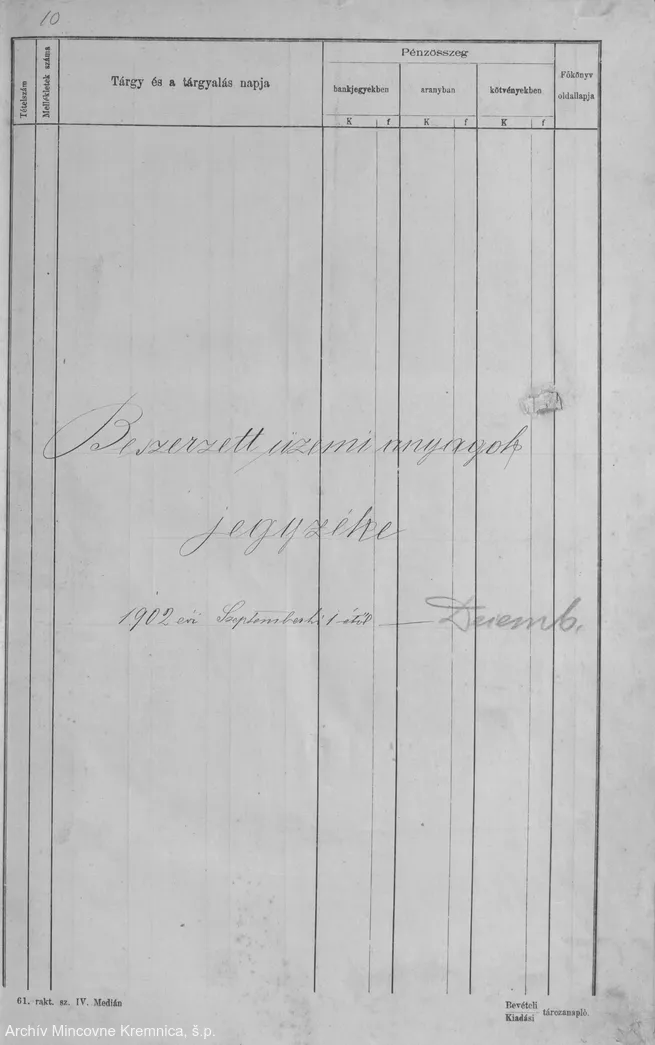 10
Tételszám
Mellékletek száma
Tárgy és a tárgyalás napja
Pénzösszeg
bankjegyekben
aranyban
kötvényekben
Főkönyv
oldallapja
K f K f K f
Beszerzett üzemi anyagok
jegyzéke
1902 évi Szeptemberhó 1 étől — Decemb.
61. rakt. sz. IV. Medián
Bevételi
Kiadási tározanapló.
Archív Mincovne Kremnica, š.p.